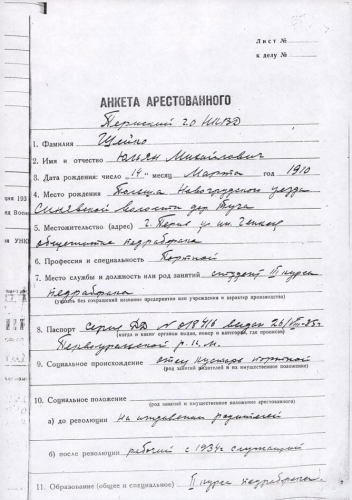 Лист №
к делу №
АНКЕТА АРЕСТОВАННОГО
Пермский Г.О. НКВД
1. Фамилия Шейко
2. Имя и отчество Юльян Михайлович
3. Дата рождения: число 14 месяц Марта год 1910
4. Место рождения Польша Новогрудского уезда
волость дер.
5. Местожительство (адрес) г. Пермь ул. им.
общежитие педрабфака
6. Профессия и специальность Портной
7. Место службы и должность или род занятий студент III курса
педрабфака
(указать без сокращений название предприятия или учреждения и характер производства)
8. Паспорт Серия № 018416 выдан 26/VII-35г.
(когда и каким органом выдан, номер и категория, где прописан)
Первоуральской р.к.м.
9. Социальное происхождение отец кустарь портной
(род занятий родителей и их имущественное положение)
10. Социальное положение
(род занятий и имущественное положение арестованного)
а) до революции на иждивении родителей
б) после революции рабочий с 1934г служащий
11. Образование (общее и специальное) II курса педрабфака